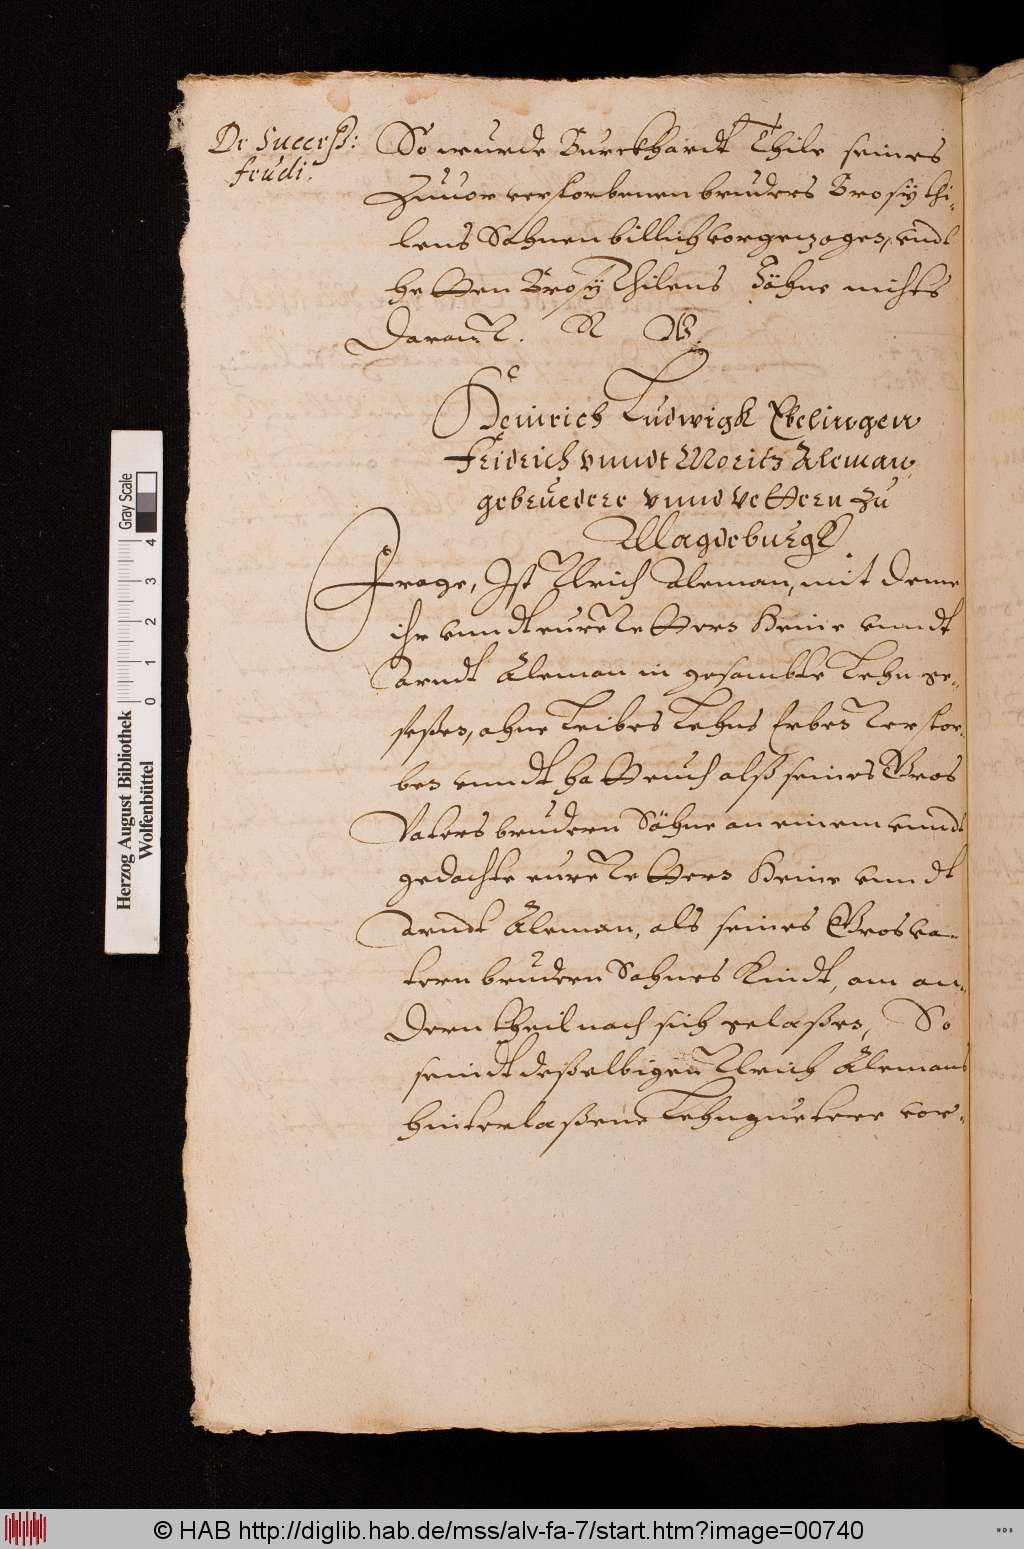 De Success:
feudi.
So wurde Burckhardt Thile seines
Zuuor verstorbenen bruders Brosÿ thi-
lens Sohnen billich vorgezogen, vndt
hetten Brosÿ Thilens Söhne nichts
daran. V. R. W.
Heinrich Ludwigk Ebelingen
Fridrich vnndt Moritz Aleman,
gebruedere vnnd Vettern zu
Magdeburgk
Frage, Ist Vlrich Aleman, mit deme
ihr vnndt eure Vettern Heine vnndt
Arndt Aleman in gesambte Lehn ge-
seßen, ohne Leibes Lehns Erben Verstor-
ben vnndt hatt euch alß seines Gros
Vaters brudern Söhne an einem vnndt
gedachte eure Vettern Heine vnndt
Arndt Aleman, als seines Grosva-
tern brudern Sohnes Kindt, am an-
dern theil nach sich gelaßen, So
seindt deßelbigen Vlrich Alemans
hinterlaßene Lehnguetere vor-
Herzog August Bibliothek
Wolfenbüttel
0 1 2 3 4
Gray Scale
© HAB http://diglib.hab.de/mss/alv-fa-7/start.htm?image=00740